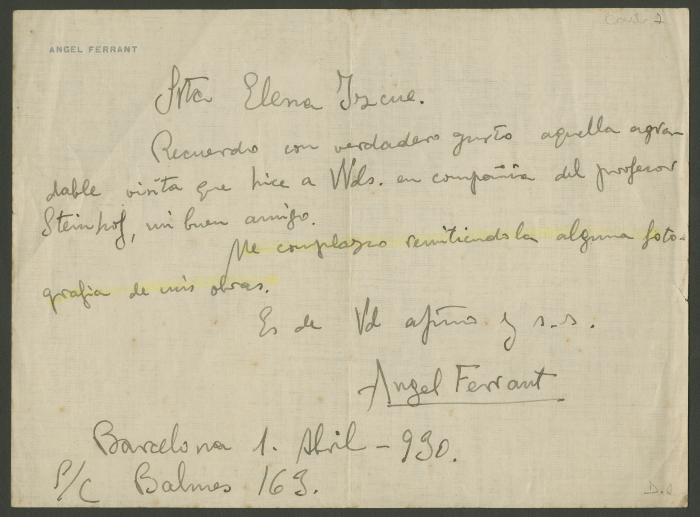 ANGEL FERRANT
Srta Elena Izcue.
Recuerdo con verdadero gusto aquella agra-
dable visita que hice a Vds. en compañía del profesor
Steinhof, mi buen amigo.
Me complazco remitiendola alguna foto-
grafia de mis obras.
Es de Vd afmo y s.s.
Angel Ferrant
Barcelona 1. Abril - 930.
S/C Balmes 163.